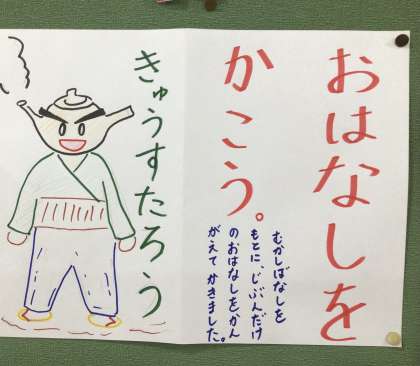 おはなしを
かこう。
むかしばなしを
もとに、じぶんだけ
のおはなしをかん
がえて かきました。
きゅうすたろう